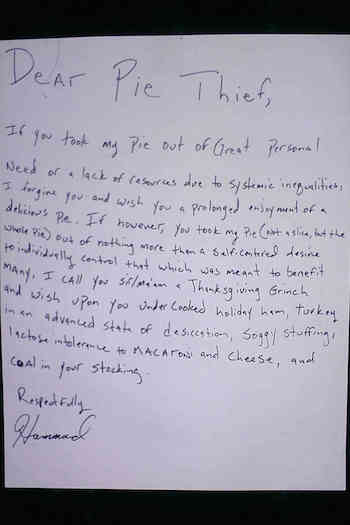 Dear Pie Thief,
If you took my Pie out of Great Personal
Need or a lack of resources due to systemic inequalities,
I forgive you and wish you a prolonged enjoyment of a
delicious Pie. If however, you took my Pie (not a slice, but the
whole Pie) out of nothing more than a self-centred desire
to individually control that which was meant to benefit
many, I call you sir/ma'am a Thanksgiving Grinch
and wish upon you undercooked holiday ham, turkey
in an advanced state of desiccation, soggy stuffing,
lactose intolerence to MACARONI and Cheese, and
coal in your stocking.
Respectfully
Hammad